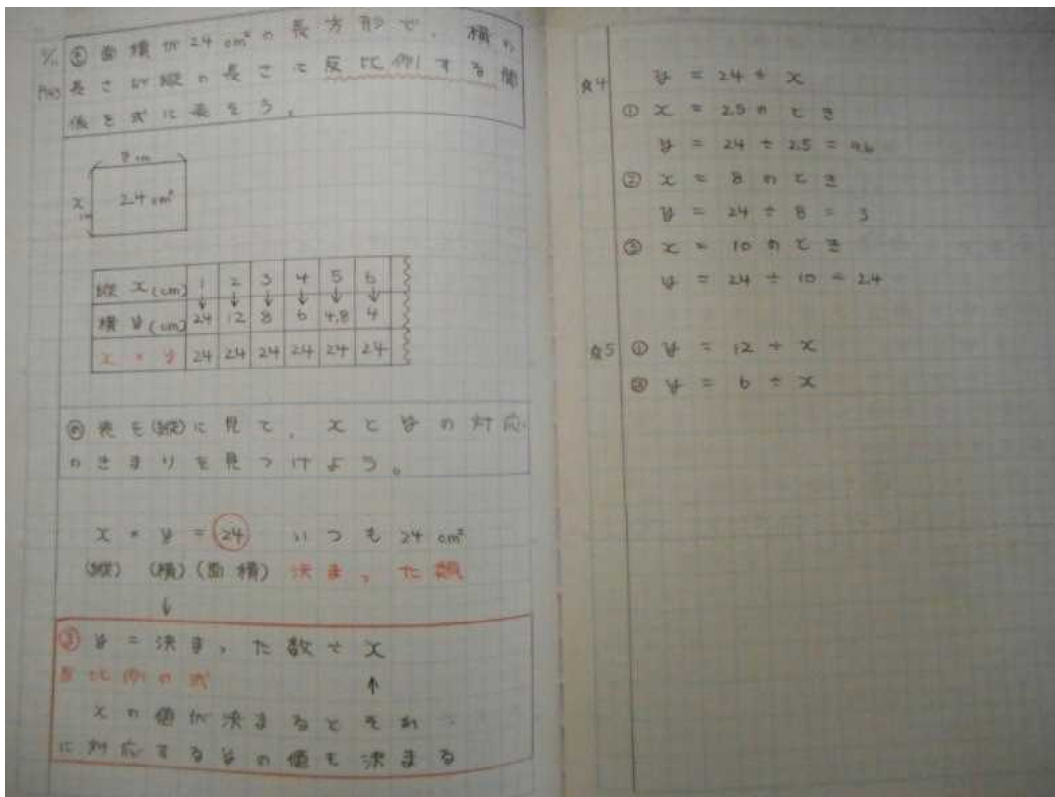 面積が24cm²の長方形で、横の
長さが縦の長さに反比例する関
係を式に表そう。
24cm²
x
縦 x(cm) 1 2 3 4 5 6
↓ ↓ ↓ ↓ ↓ ↓
横 y(cm) 24 12 8 6 4.8 4
x × y 24 24 24 24 24 24
表を(縦)に見て、xとyの対応
のきまりを見つけよう。
x × y = 24 いつも24cm²
(縦) (横) (面積) 決まった数
↓
y = 決まった数 ÷ x
反比例の式 ↑
xの値が決まるとそれ
に対応するyの値も決まる
4 y = 24 ÷ x
① x = 2.5のとき
y = 24 ÷ 2.5 = 9.6
② x = 8のとき
y = 24 ÷ 8 = 3
③ x = 10のとき
y = 24 ÷ 10 = 2.4
5 ① y = 12 ÷ x
② y = 6 ÷ x